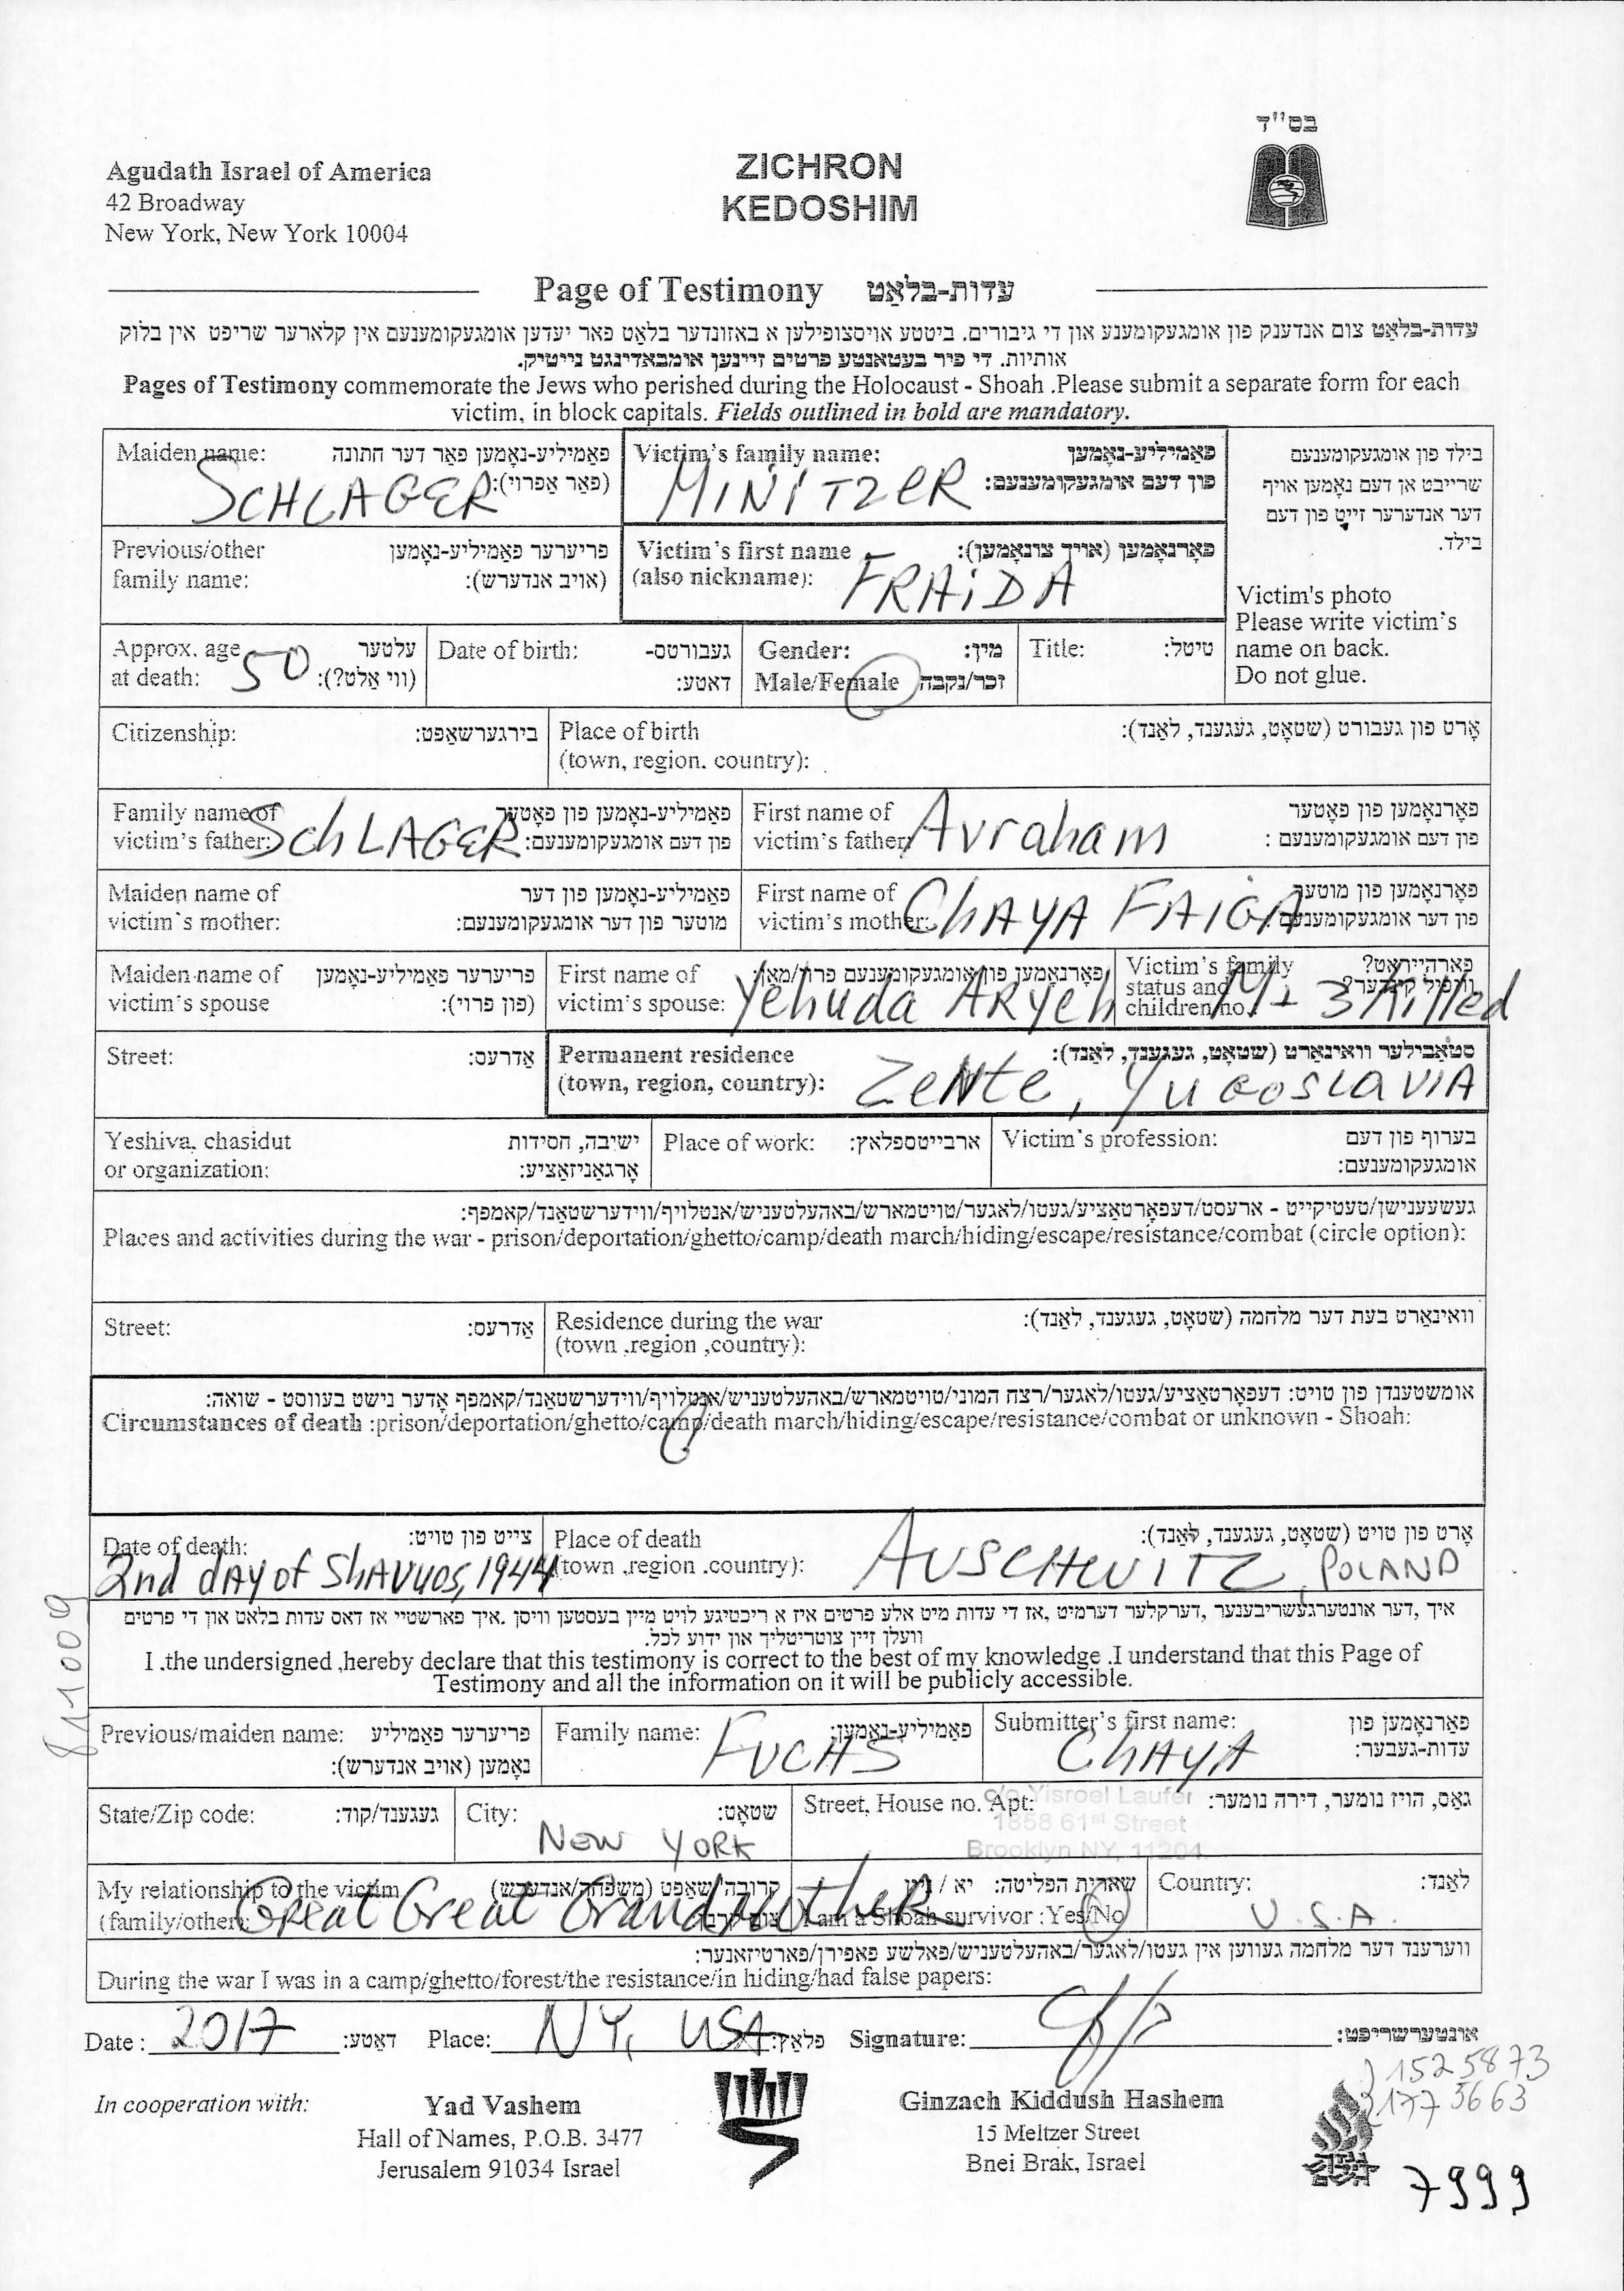 בס"ד
Agudath Israel of America
42 Broadway
New York, New York 10004
ZICHRON
KEDOSHIM
Page of Testimony עדות-בלאַט
עדות-בלאַט צום אנדענק פון אומגעקומענע און די גיבורים. ביטטע אויסצופילען א באזונדער בלאַט פאר יעדען אומגעקומענעם אין קלארער שריפט אין בלוק
אותיות. די פיר בעטאנטע פרטים זיינען אומבאדינגט נייטיק.
Pages of Testimony commemorate the Jews who perished during the Holocaust - Shoah .Please submit a separate form for each
victim, in block capitals. Fields outlined in bold are mandatory.
Maiden name: פאַמיליע-נאָמען פאר דער חתונה
(פאר אפרוי):
SCHLAGER
Victim's family name: פאַמיליע-נאָמען
פון דעם אומגעקומענעם:
MINITZER
בילד פון אומגעקומענעם
שרייבט אן דעם נאָמען אויף
דער אנדערער זייט פון דעם
בילד.
Victim's photo
Please write victim's
name on back.
Do not glue.
Previous/other פריערער פאַמיליע-נאָמען
family name: (אויב אנדערש):
Victim's first name פאָרנאָמען (אויך צונאָמען):
(also nickname): FRAIDA
Approx. age עלטער
at death: 50 (ווי אלט?):
Date of birth: געבורטס-
דאטע:
Gender: מין:
Male/Female זכר/נקבה
Title: טיטל:
Citizenship: בירגערשאַפט:
Place of birth אָרט פון געבורט (שטאָט, געגענד, לאַנד):
(town, region. country):
Family name of פאַמיליע-נאָמען פון פאָטער
victim's father: פון דעם אומגעקומענעם:
SchLAGER
First name of פאָרנאָמען פון פאָטער
victim's father: פון דעם אומגעקומענעם :
Avraham
Maiden name of פאַמיליע-נאָמען פון דער
victim's mother: מוטער פון דער אומגעקומענעם:
First name of פאָרנאָמען פון מוטער
victim's mother: פון דער אומגעקומענעם:
CHAYA FAIGA
Maiden name of פריערער פאַמיליע-נאָמען
victim's spouse (פון פרוי):
First name of פאָרנאָמען פון אומגעקומענעם פרוי/מאן:
victim's spouse: Yehuda ARyeh
Victim's family פארהייראַט?
status and
children no.
M - 3 killed
Street: אַדרעס:
Permanent residence סטאַבילער וואינאָרט (שטאָט, געגענד, לאַנד):
(town, region, country): ZeNte, YuGoslaVIA
Yeshiva, chasidut ישיבה, חסידות
or organization: אָרגאַניזאַציע:
Place of work: ארבייטספלאץ:
Victim's profession: בערוף פון דעם
אומגעקומענעם:
געשעענישן/טעטיקייט - ארעסט/דעפאָרטאַציע/געטו/לאגער/טויטמארש/באהעלטעניש/אנטלויף/ווידערשטאַנד/קאמפף:
Places and activities during the war - prison/deportation/ghetto/camp/death march/hiding/escape/resistance/combat (circle option):
Street: אַדרעס:
Residence during the war וואינאָרט בעת דער מלחמה (שטאָט, געגענד, לאַנד):
(town .region ,country):
אומשטענדן פון טויט: דעפאָרטאַציע/געטו/לאגער/רצח המוני/טויטמארש/באהעלטעניש/אנטלויף/ווידערשטאַנד/קאמפף אָדער נישט בעוווסט - שואה:
Circumstances of death :prison/deportation/ghetto/camp/death march/hiding/escape/resistance/combat or unknown - Shoah:
Date of death: צייט פון טויט:
2nd dAY of ShAVuos, 1944
Place of death אָרט פון טויט (שטאָט, געגענד, לאַנד):
(town .region .country): AUSCHWITZ, POLAND
איך ,דער אונטערגעשריבענער ,דערקלער דערמיט ,אז די עדות מיט אלע פרטים איז א ריכטיגע לויט מיין בעסטען וויסן .איך פארשטיי אז דאס עדות בלאט און די פרטים
וועלן זיין צוטריטליך און ידוע לכל.
I .the undersigned ,hereby declare that this testimony is correct to the best of my knowledge .I understand that this Page of
Testimony and all the information on it will be publicly accessible.
8110009
Previous/maiden name: פריערער פאַמיליע
נאָמען (אויב אנדערש):
Family name: פאַמיליע-נאָמען:
FUCHS
Submitter's first name: פאַרנאָמען פון
עדות-געבער:
ChAYA
State/Zip code: געגענד/קוד:
City: שטאָט:
NEW YORK
Street, House no. Apt: גאַס, הויז נומער, דירה נומער:
c/o Yisroel Laufer
1858 61st Street
Brooklyn NY, 11204
My relationship to the victim קרובה'שאַפט (משפחה/אנדערש)
(family/other):
Great Great GrandMotheR
שארית הפליטה: יא /
I am a Shoah survivor :Yes/No
Country: לאַנד:
U.S.A.
ווערענד דער מלחמה געווען אין געטו/לאגער/באהעלטעניש/פאלשע פאפירן/פארטיזאנער:
During the war I was in a camp/ghetto/forest/the resistance/in hiding/had false papers:
Date : 2017 דאַטע: Place: NY, USA פלאַץ: Signature: אונטערשריפט:
1525873
3663
In cooperation with:
Yad Vashem
Hall of Names, P.O.B. 3477
Jerusalem 91034 Israel
Ginzach Kiddush Hashem
15 Meltzer Street
Bnei Brak, Israel
7999